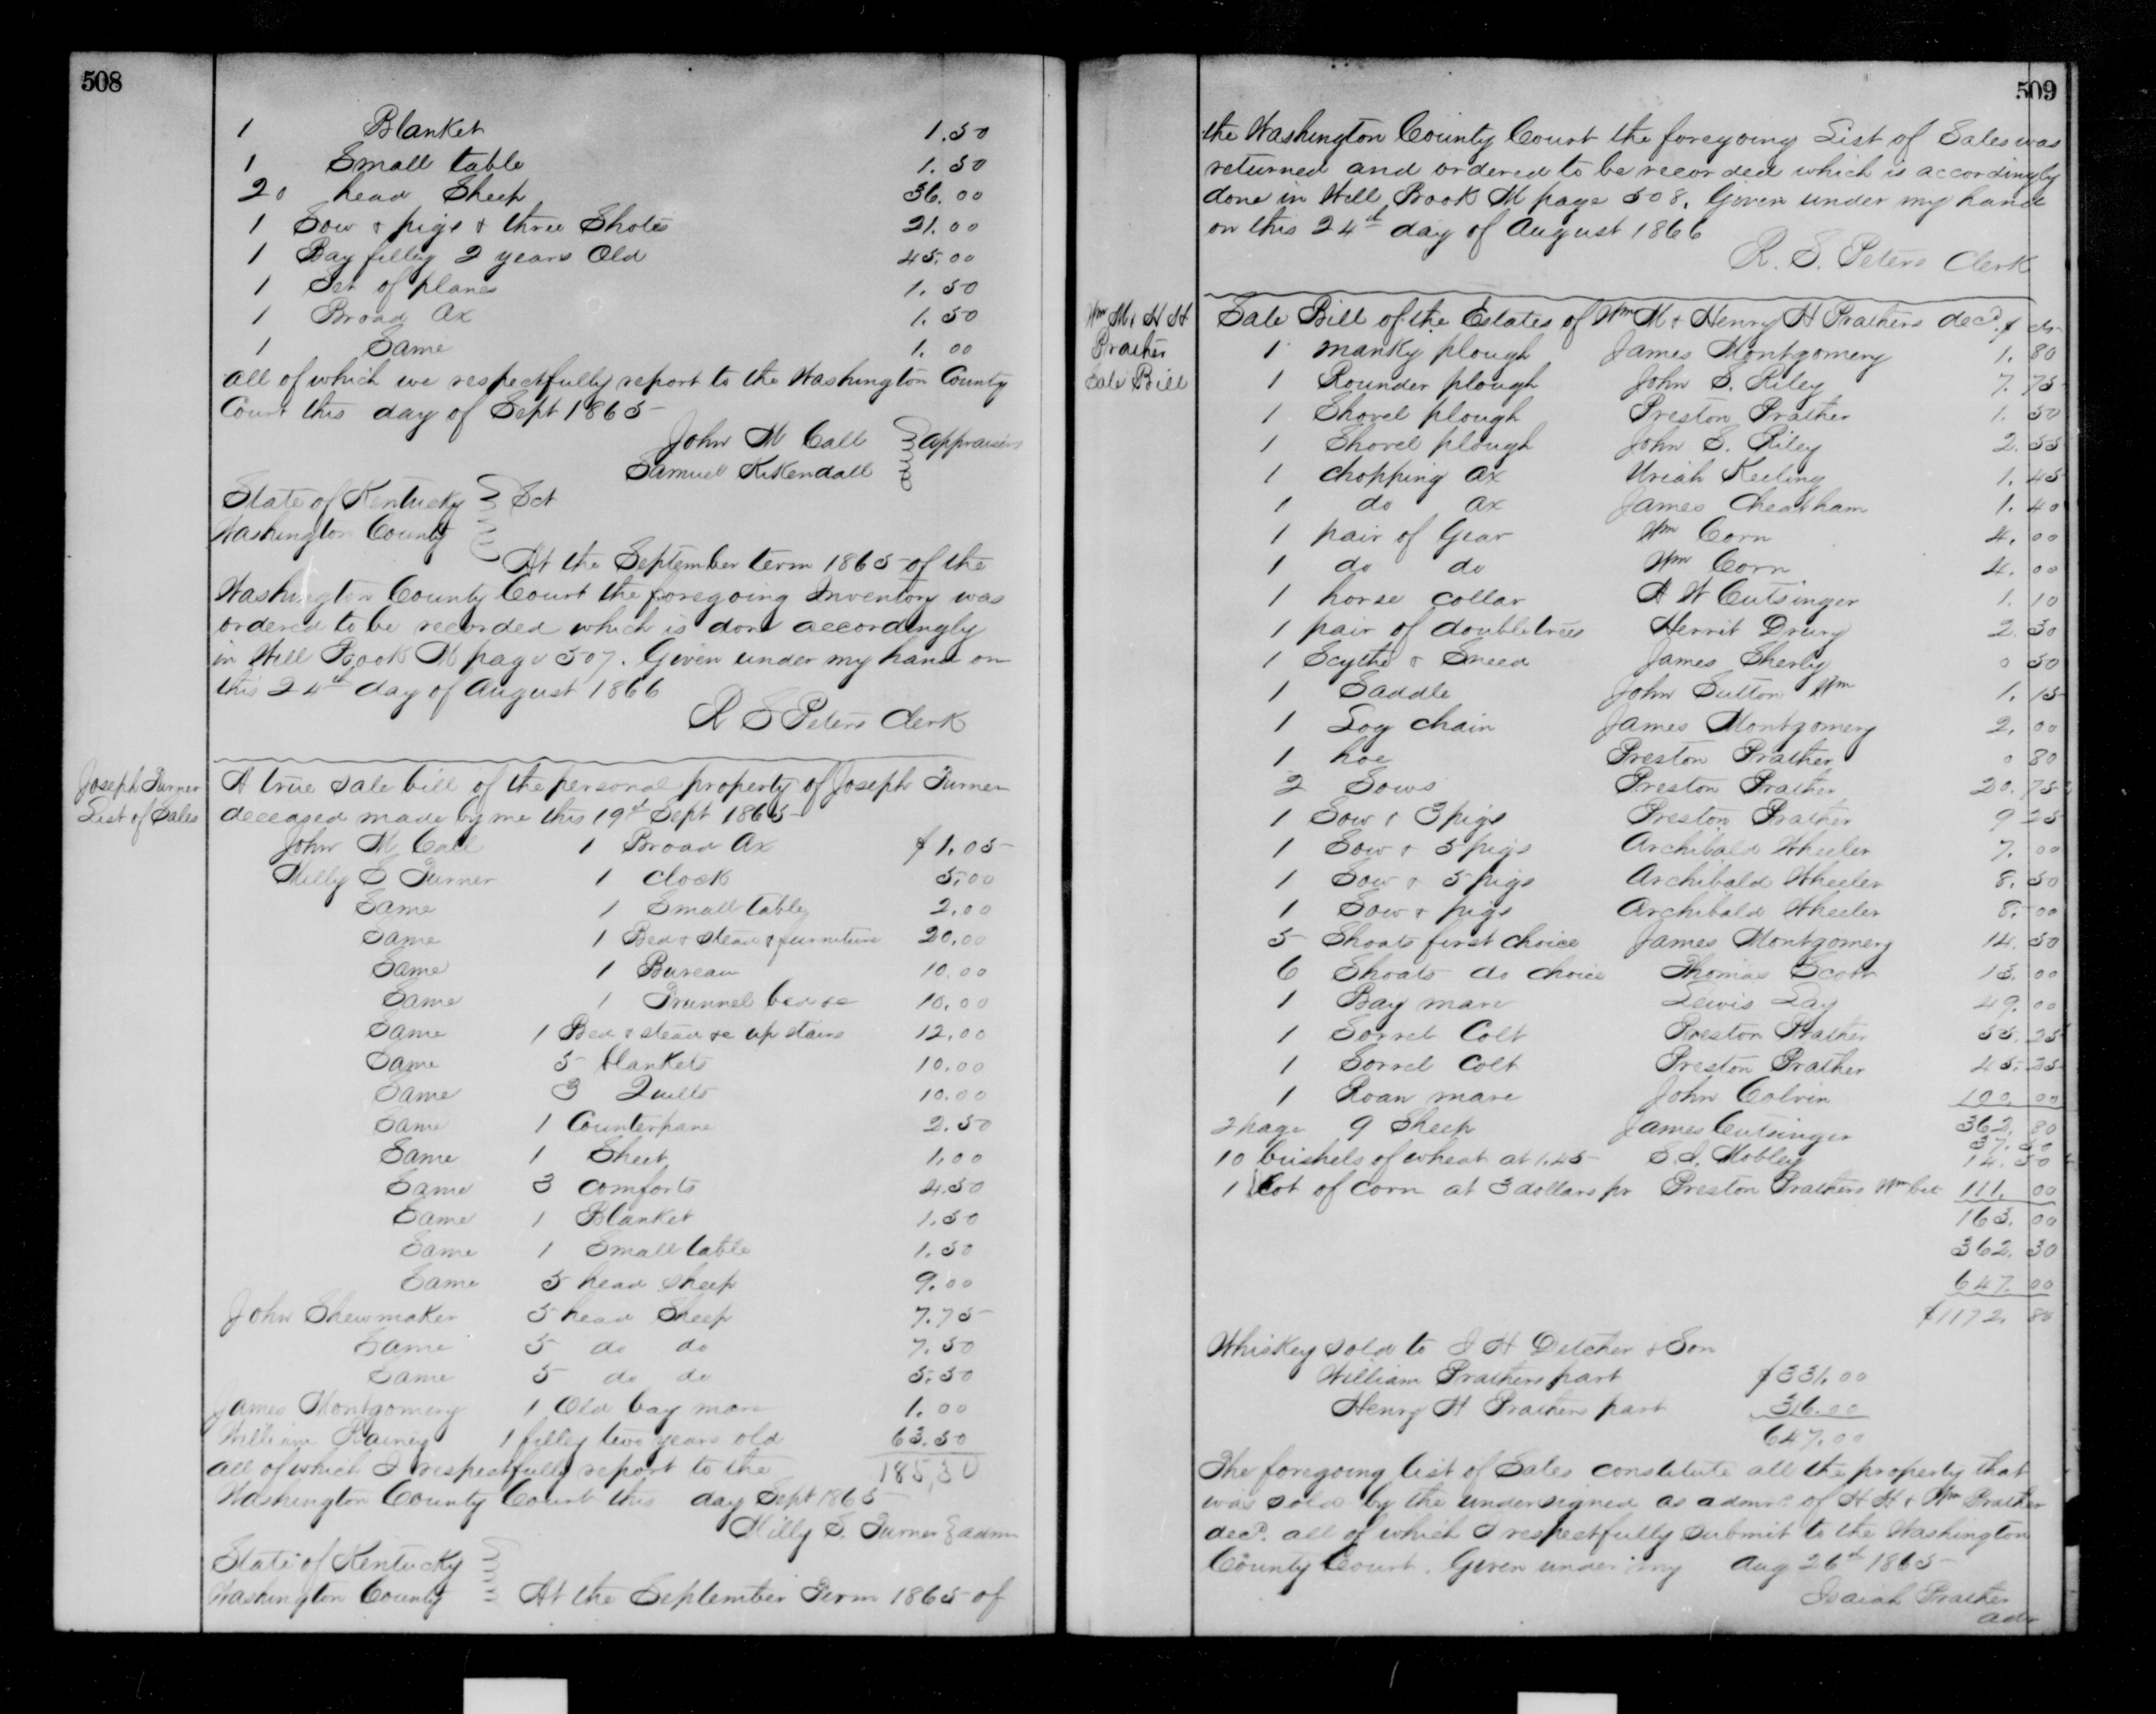 508
1 Blanket 1.50
1 Small table 1.50
20 head Sheep 36.00
1 Sow & pigs & three Shotes 21.00
1 Bay filley 2 years Old 45.00
1 Set of planes 1.50
1 Broad Ax 1.50
1 Same 1.00
all of which we respectfully report to the Washington County
Court this day of Sept 1865
John M Call
Samuel Kikendall } appraisers
State of Kentucky } Sct
Washington County
At the September term 1865 of the
Washington County Court the foregoing Inventory was
ordered to be recorded which is done accordingly
in Will Book M page 507. Given under my hand on
this 24th day of August 1866
R S Peters Clerk
Joseph Turner
List of Sales
A true sale bill of the personal property of Joseph Turner
deceased made by me this 19th Sept 1865
John M Call 1 Broad Ax $1.05
Milly S Turner 1 Clock 5.00
Same 1 Small table 2.00
Same 1 Bed & stead & furniture 20.00
Same 1 Bureau 10.00
Same 1 Trunnel bed &c 10.00
Same 1 Bed & stead &c up stairs 12.00
Same 5 blankets 10.00
Same 3 Quilts 10.00
Same 1 Counterpane 2.50
Same 1 Sheet 1.00
Same 3 comforts 4.50
Same 1 Blanket 1.50
Same 1 Small table 1.50
Same 5 head sheep 9.00
John Shewmaker 5 head Sheep 7.75
Same 5 do do 7.50
Same 5 do do 5.50
James Montgomery 1 Old bay mare 1.00
William Rainey 1 filley two years old 63.50
all of which I respectfully report to the 185,30
Washington County Court this day Sept 1865
Milly S. Turner } admr
State of Kentucky }
Washington County At the September Term 1865 of
509
the Washington County Court the foregoing List of Sales was
returned and ordered to be recorded which is accordingly
done in Will Book M page 508. Given under my hand
on this 24th day of August 1866
R. S. Peters Clerk
Wm M & H H
Prather
Sale Bill
Sale Bill of the Estates of Wm M & Henry H Prathers decd. $ cts
1 manky plough James Montgomery 1.80
1 Rounder plough John S. Riley 7.75
1 Shovel plough Preston Prather 1.50
1 Shovel plough John S. Riley 2.55
1 chopping ax Uriah Keeling 1.45
1 do ax James Cheatham 1.40
1 pair of Gear Wm Corn 4.00
1 do do Wm Corn 4.00
1 horse collar A W Cutsinger 1.10
1 pair of doubletrees Merrit Drury 2.30
1 Scythe & Sneed James Sherly 0 50
1 Saddle John Sutton Wm 1.15
1 Log chain James Montgomery 2.00
1 hoe Preston Prather 0 80
2 Sows Preston Prather 20.75
1 Sow & 3 pigs Preston Prather 9 25
1 Sow & 5 pigs Archibald Wheeler 7.00
1 Sow & 5 pigs Archibald Wheeler 8.50
1 Sow & pigs Archibald Wheeler 8.00
5 Shoats first choice James Montgomery 14.50
6 Shoats do choice Thomas Scott 13.00
1 Bay mare Lewis Lay 49.00
1 Sorrel Colt Preston Prather 55.25
1 Sorrel Colt Preston Prather 45.25
1 Roan mare John Colvin 100.00
362.80
2 page 9 Sheep James Cutsinger 37.50
10 bushels of wheat at 1.45 S. I. Mobley 14.50
1 Lot of corn at 3 dollars pr Preston Prathers Wm 111.00
163.00
362.30
647.00
$1172.80
Whiskey sold to J H Detcher & Son
William Prathers part $331.00
Henry H Prathers part 316.00
647.00
The foregoing list of Sales constitute all the property that
was sold by the undersigned as admr. of H H & Wm Prather
decd. all of which I respectfully submit to the Washington
County Court. Given under my Aug 26th 1865
Isaiah Prather
adr